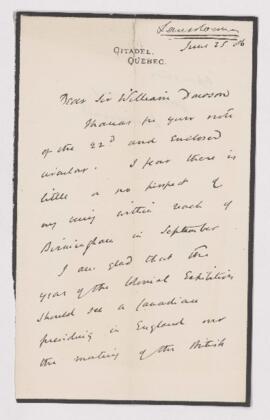 Lansdowne
June 25 86
CITADEL,
QUEBEC.
Dear Sir William Dawson
Thanks for your note
of the 22d and enclosed
circular. I fear there is
little or no prospect of
my being within reach of
Birmingham in September
I am glad that the
year of the Colonial Exhibition
should see a Canadian
presiding in England over
the meeting of the British